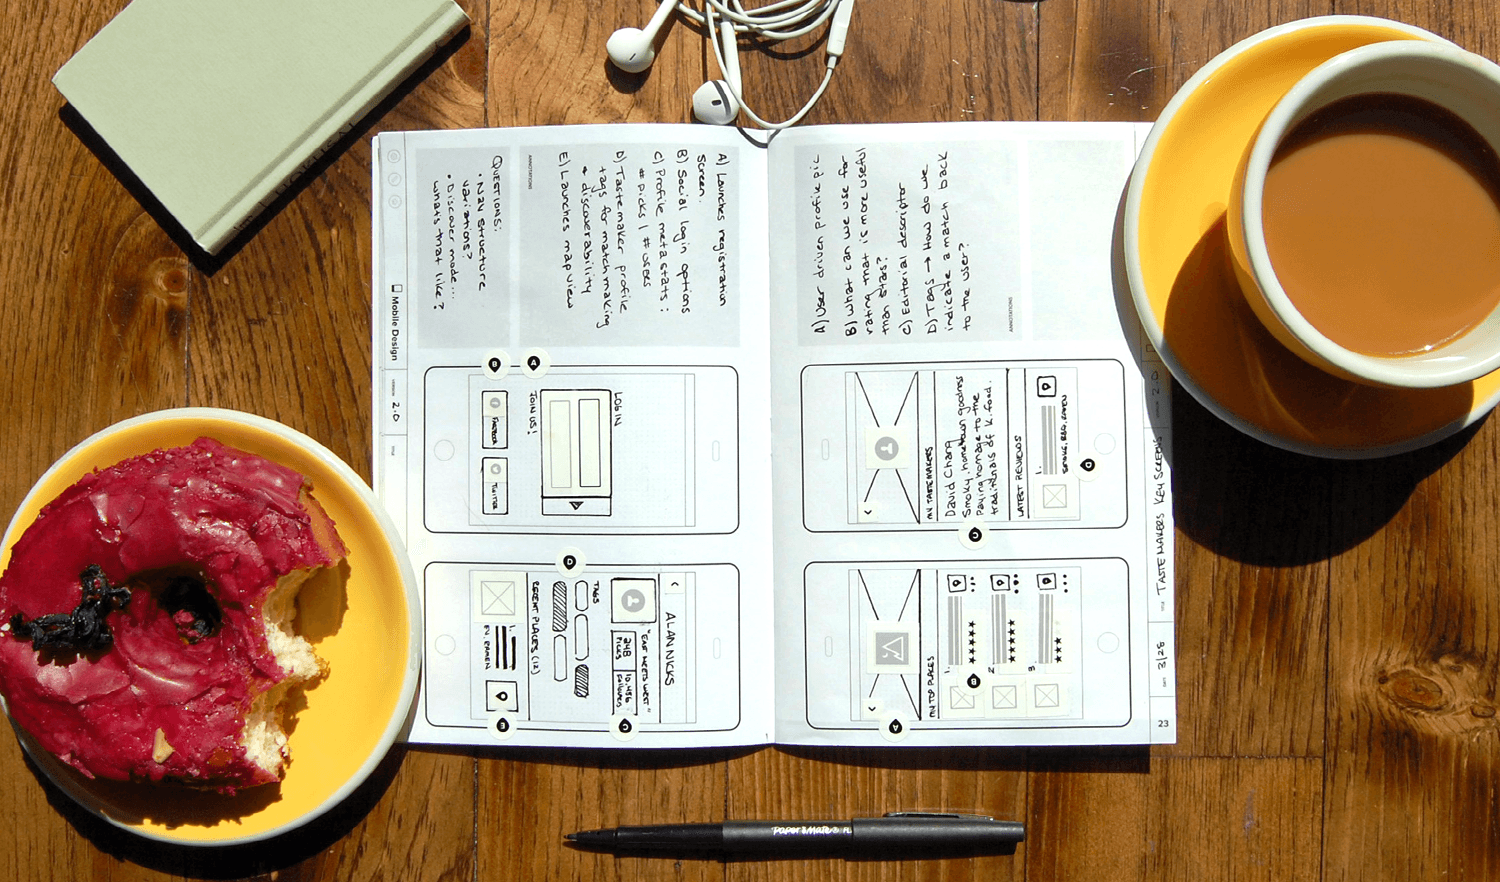 Mobile Design
VERSION
2.0
TITLE
ANNOTATIONS
A) Launches registration
screen.
B) Social login options
C) Profile meta stats:
# picks | # users
D) Tastemaker profile
tags for matchmaking
& discoverability
E) Launches map view
QUESTIONS:
• Nav structure
variations?
• Discover mode...
whats that like?
B
A
LOG IN
JOIN US!
FACEBOOK
TWITTER
D
ALAN NICKS
"EAST MEETS WEST"
348
PICKS
10,456
followers
TAGS
RECENT PLACES (12)
1.
EN. RAMEN
E
C
A) User driven profile pic
B) What can we use for
rating that is more useful
than stars?
C) Editorial descriptor
D) Tags → How do we
indicate a match back
to the user?
ANNOTATIONS
MY TASTEMAKERS
David Chang
Smoky, hometown goodness
Paying homage to the
traditionals of k. food.
LATEST REVIEWS
1.
SMOKE, BBQ, RAMEN
D
C
MY TOP PLACES
1.
★★★★★
2
★★★★★
3
★★★★
B
A
2.0
TITLE
TASTEMAKERS KEY SCREENS
DATE
3/25
23
PaperMate® FL